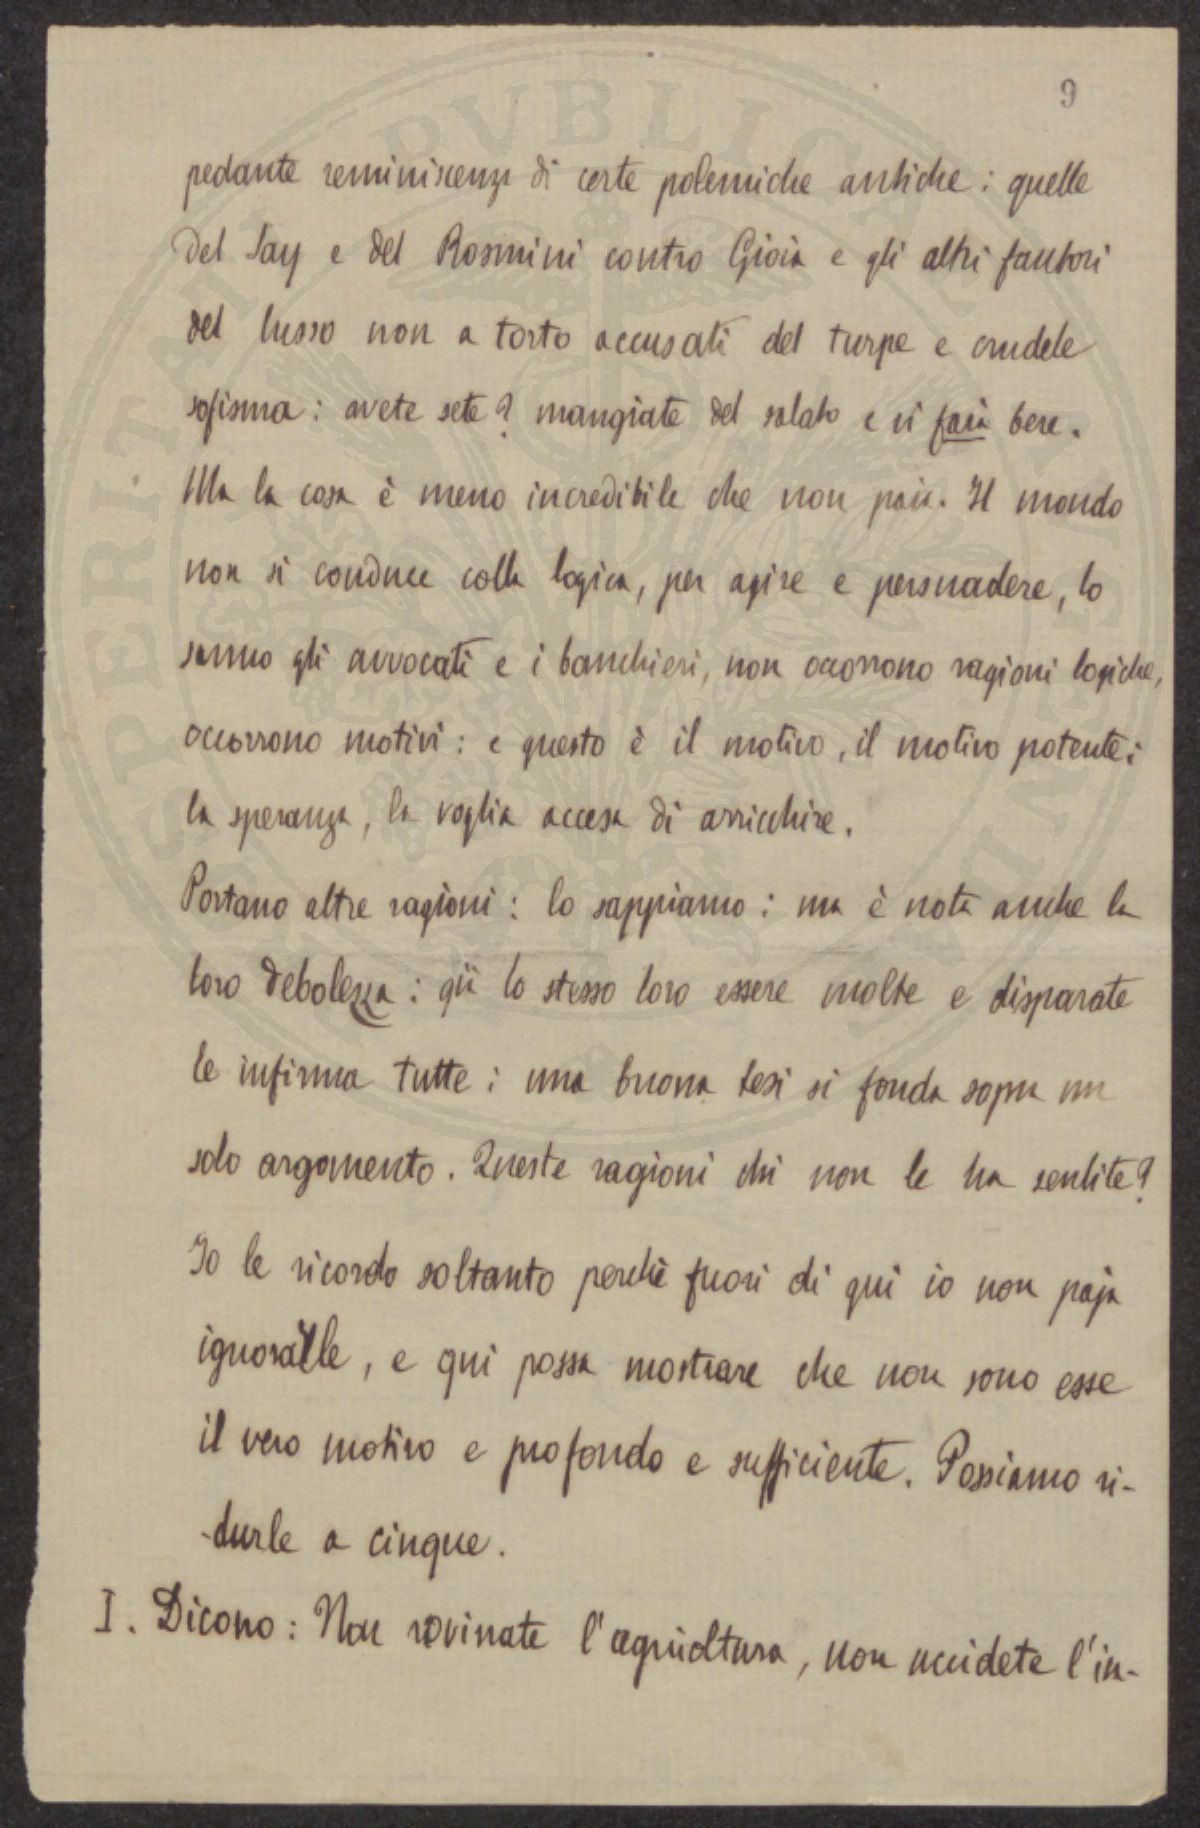 9
pedante reminiscenza di certe polemiche antiche: quelle
del Say e del Rosmini contro Gioia e gli altri fautori
del lusso non a torto accusati del turpe e crudele
sofisma: avete sete? mangiate del salato e vi farà bere.
Ma la cosa è meno incredibile che non paia. Il mondo
non si conduce colla logica, per agire e persuadere, lo
sanno gli avvocati e i banchieri, non occorrono ragioni logiche,
occorrono motivi: e questo è il motivo, il motivo potente:
la speranza, la voglia accesa di arricchire.
Portano altre ragioni: lo sappiamo: ma è nota anche la
loro debolezza: già lo stesso loro essere molte e disparate
le infirma tutte: una buona tesi si fonda sopra un
solo argomento. Queste ragioni chi non le ha sentite?
Io le ricordo soltanto perchè fuori di qui io non paja
ignorarle, e qui possa mostrare che non sono esse
il vero motivo e profondo e sufficiente. Possiamo ri-
-durle a cinque.
I. Dicono: Non rovinate l'agricoltura, non uccidete l'in-
SPERITATI PVBLICAE